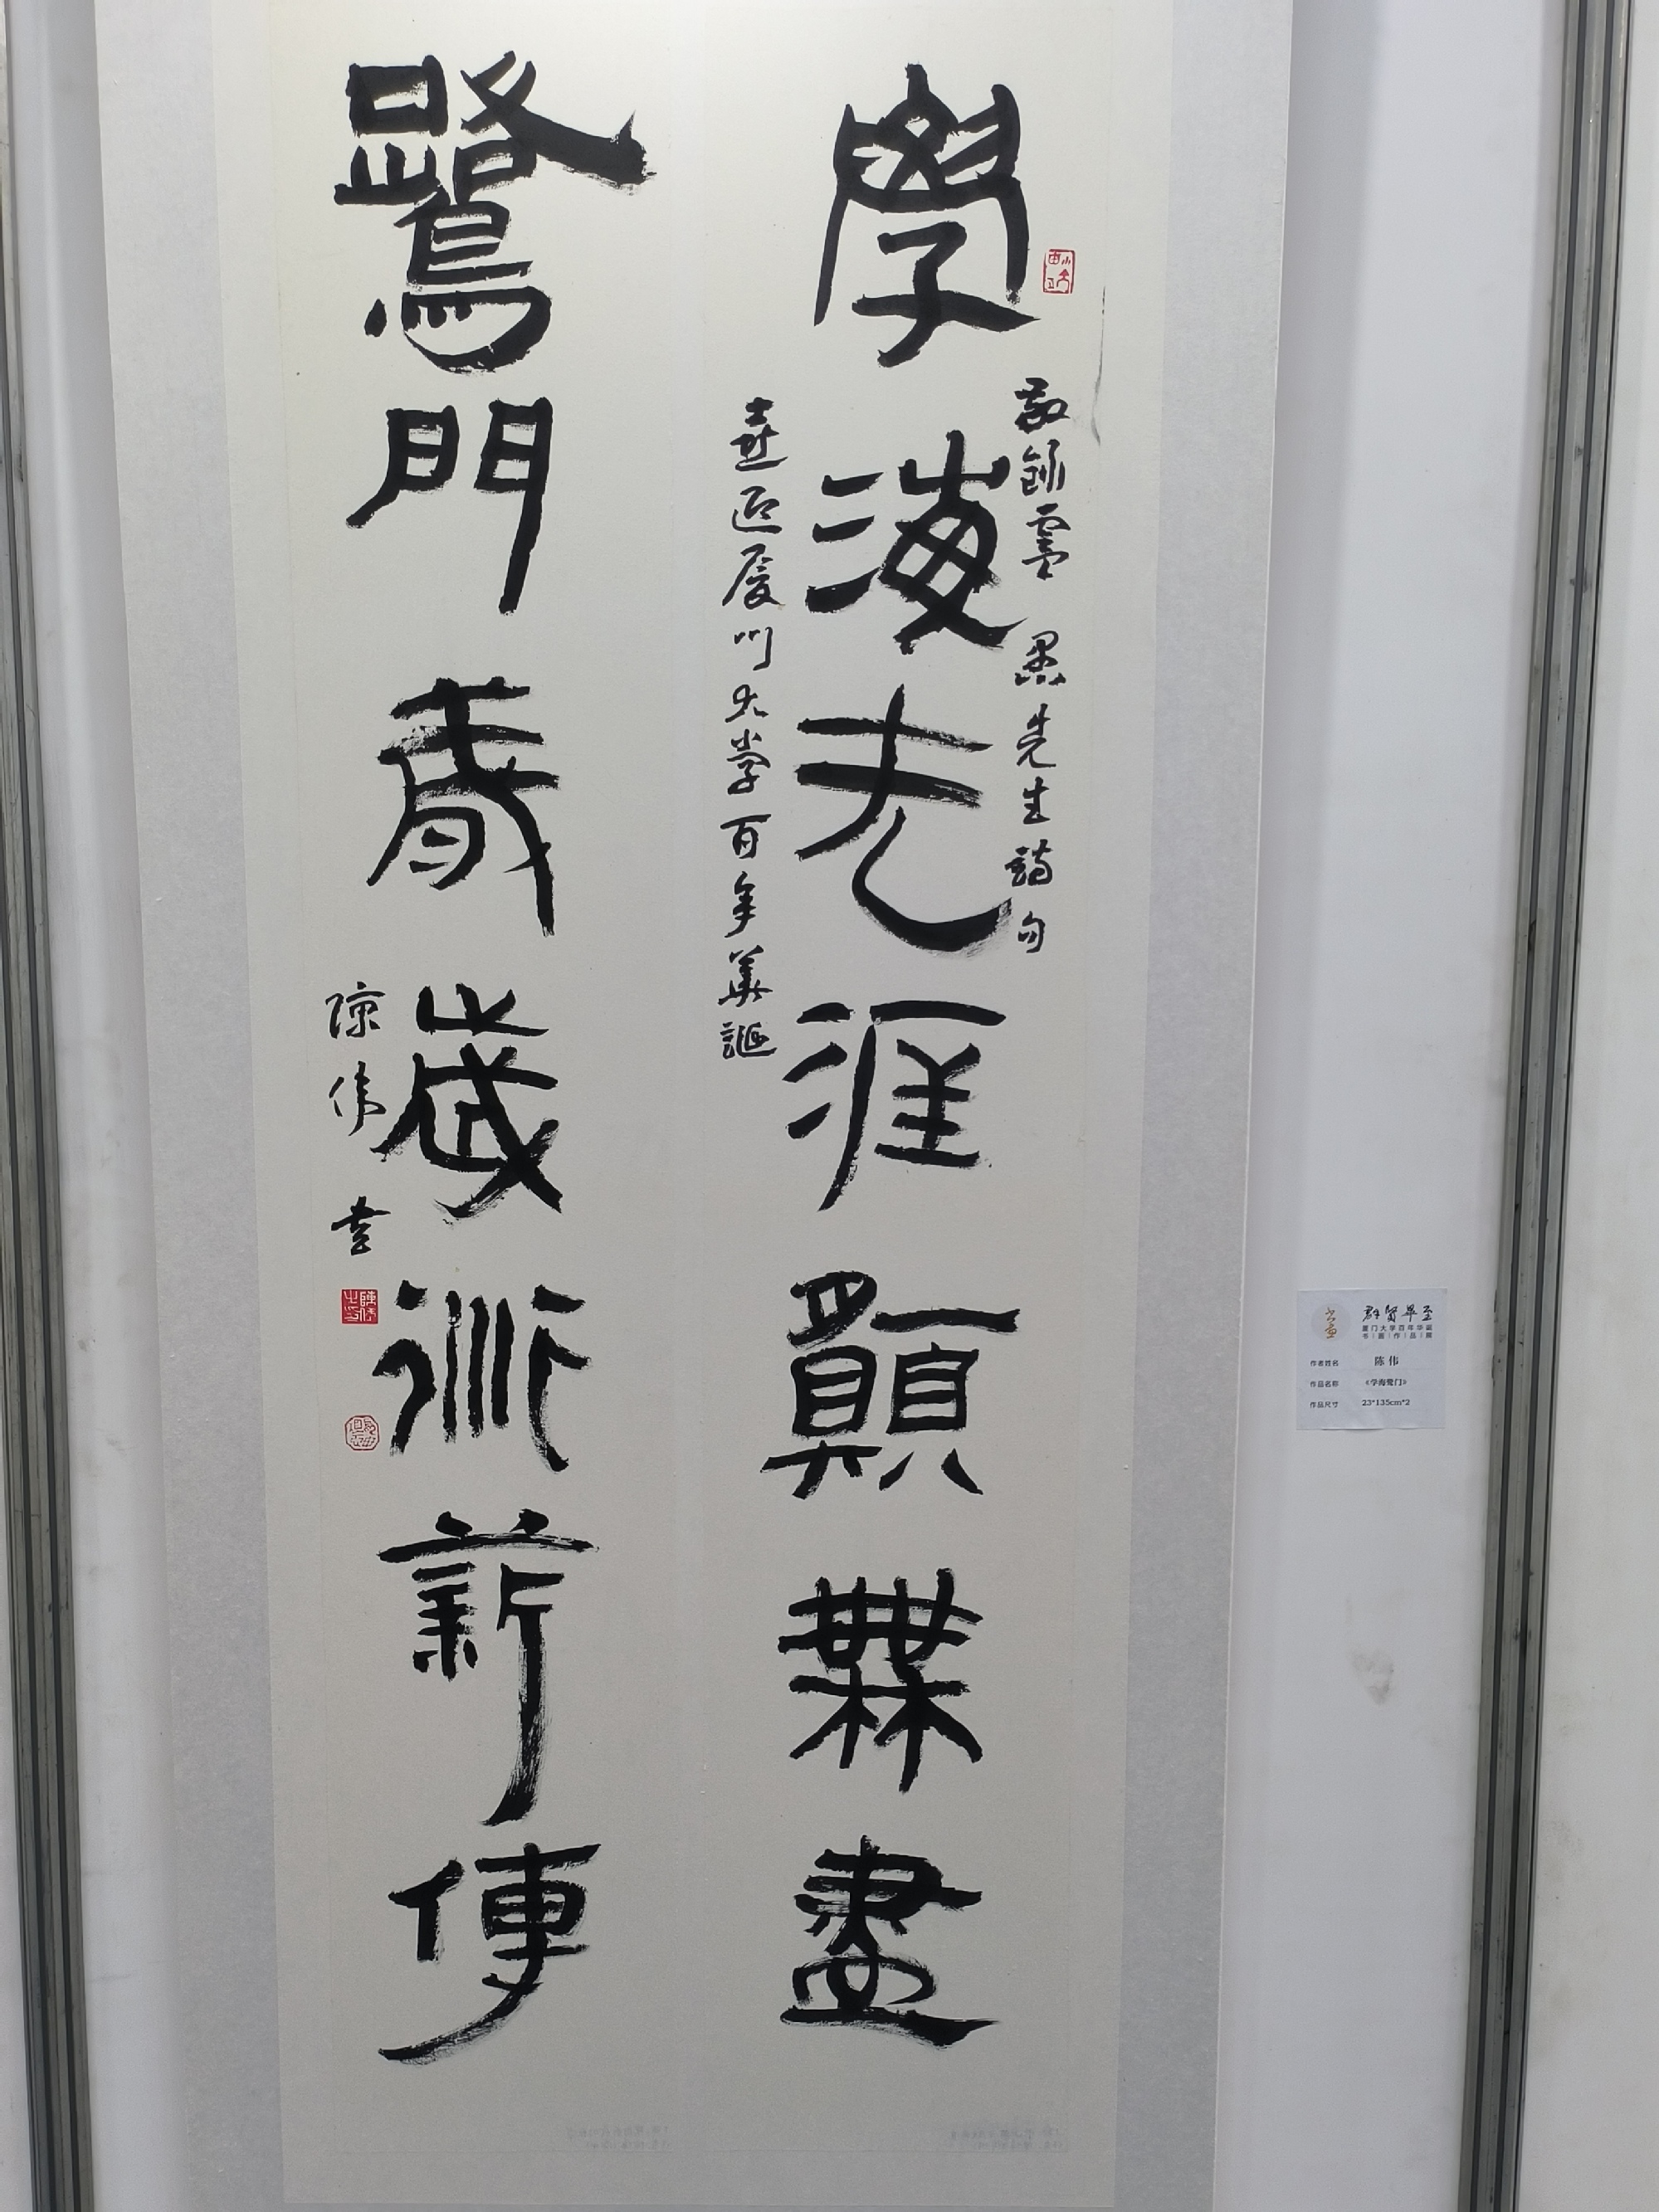 學海无涯願無盡
敬錄虞愚先生句
喜迎厦门大学百年華誕
鷺門歲衍薪傳
陳偉書
群賢畢至
厦门大学百年华诞
书|画|作|品|展
作者姓名 陈伟
作品名称 《学海鹭门》
作品尺寸 23*135cm*2